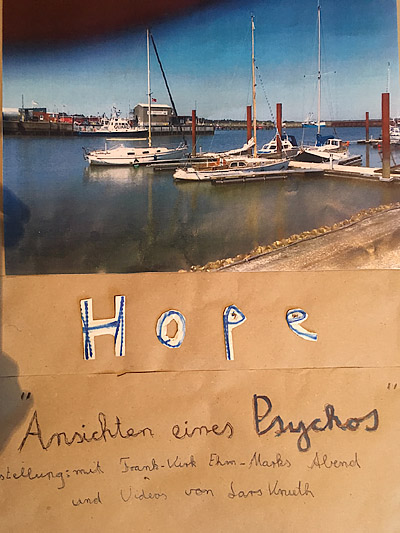 Hope
"Ansichten eines Psychos"
stellung: mit Frank-Kirk Ehm-Marks Abend
und Videos von Lars Knuth